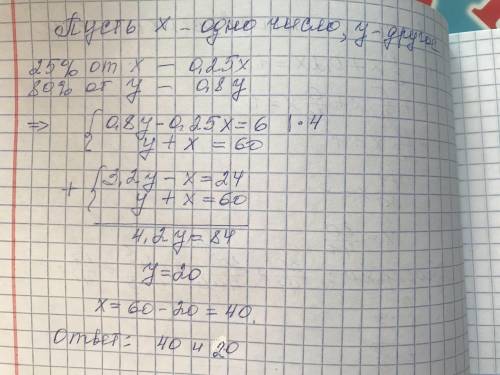 Пусть x - одно число, y - другое
25% от x - 0,25x
80% от y - 0,8y
=> { 0,8y - 0,25x = 6 | · 4
y + x = 60
+ { 3,2y - x = 24
y + x = 60
4,2y = 84
y = 20
x = 60 - 20 = 40.
Ответ: 40 и 20